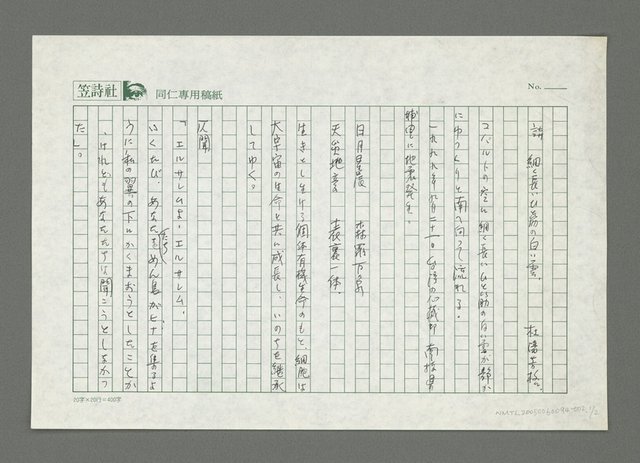 笠詩社
同仁専用稿紙
No.
詩 細く長いひと筋の白い雲。 杜潘芳格。
コバルトの空に細く長いひと筋の白い雲が静か
にゆっくりと南へ向って流れる。
一九九九年九月二十一日 台湾の心臓部 南投県
埔里に地震発生。
日月星辰 森羅万象
天災地変 表裏一体.
生きとし生ける個体有機生命のもと、細胞は
大宇宙の生命と共に成長し、いのちを継承
してゆく。
又聞
「エルサレムよ・エルサレム。
いくたび、あなたたちをめん鳥がヒナを集めるよ
うに私の翼の下にかくまおうとしたことか
、けれどもあなたたちは聞こうとしなかっ
た」。
20字×20行=400字
NMTL20050060094-002 1/2